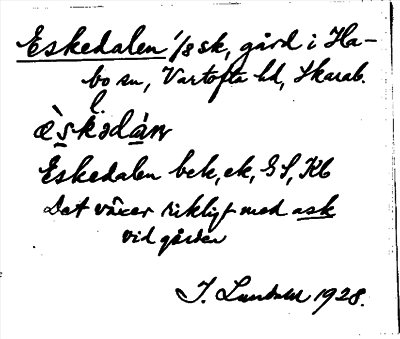 Eskedalen 1/8 sk, gård i Ha-
bo sn, Vartofta hd, Skarab. l.
æ̀skədàn
Eskedalen bek, ek, GS, Kb
Det växer rikligt med ask
vid gården
J. 1928.